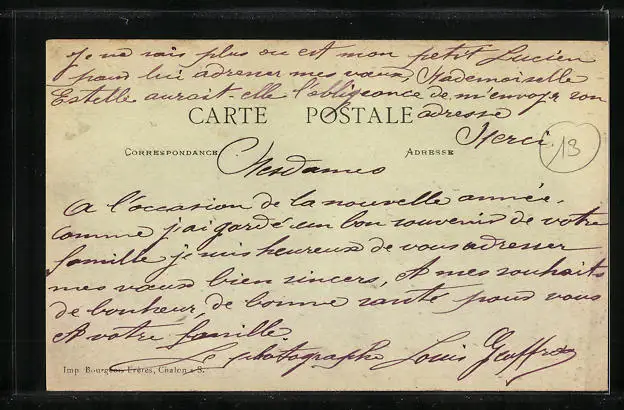 Je ne sais plus ou est mon petit Lucien
pour lui adresser mes vœux, Mademoiselle
Estelle aurait elle l'obligeance de m'envoyer son
adresse
CARTE POSTALE
Merci
13
CORRESPONDANCE
ADRESSE
Mesdames
A l'occasion de la nouvelle année,
comme j'ai gardé un bon souvenir de votre
famille je suis heureux de vous adresser
mes vœux bien sincers, et mes souhaits
de bonheur, de bonne santé pour vous
et votre famille
Le photographe Louis Geoffroy
Imp. Bourgeois Frères, Chalon s S.